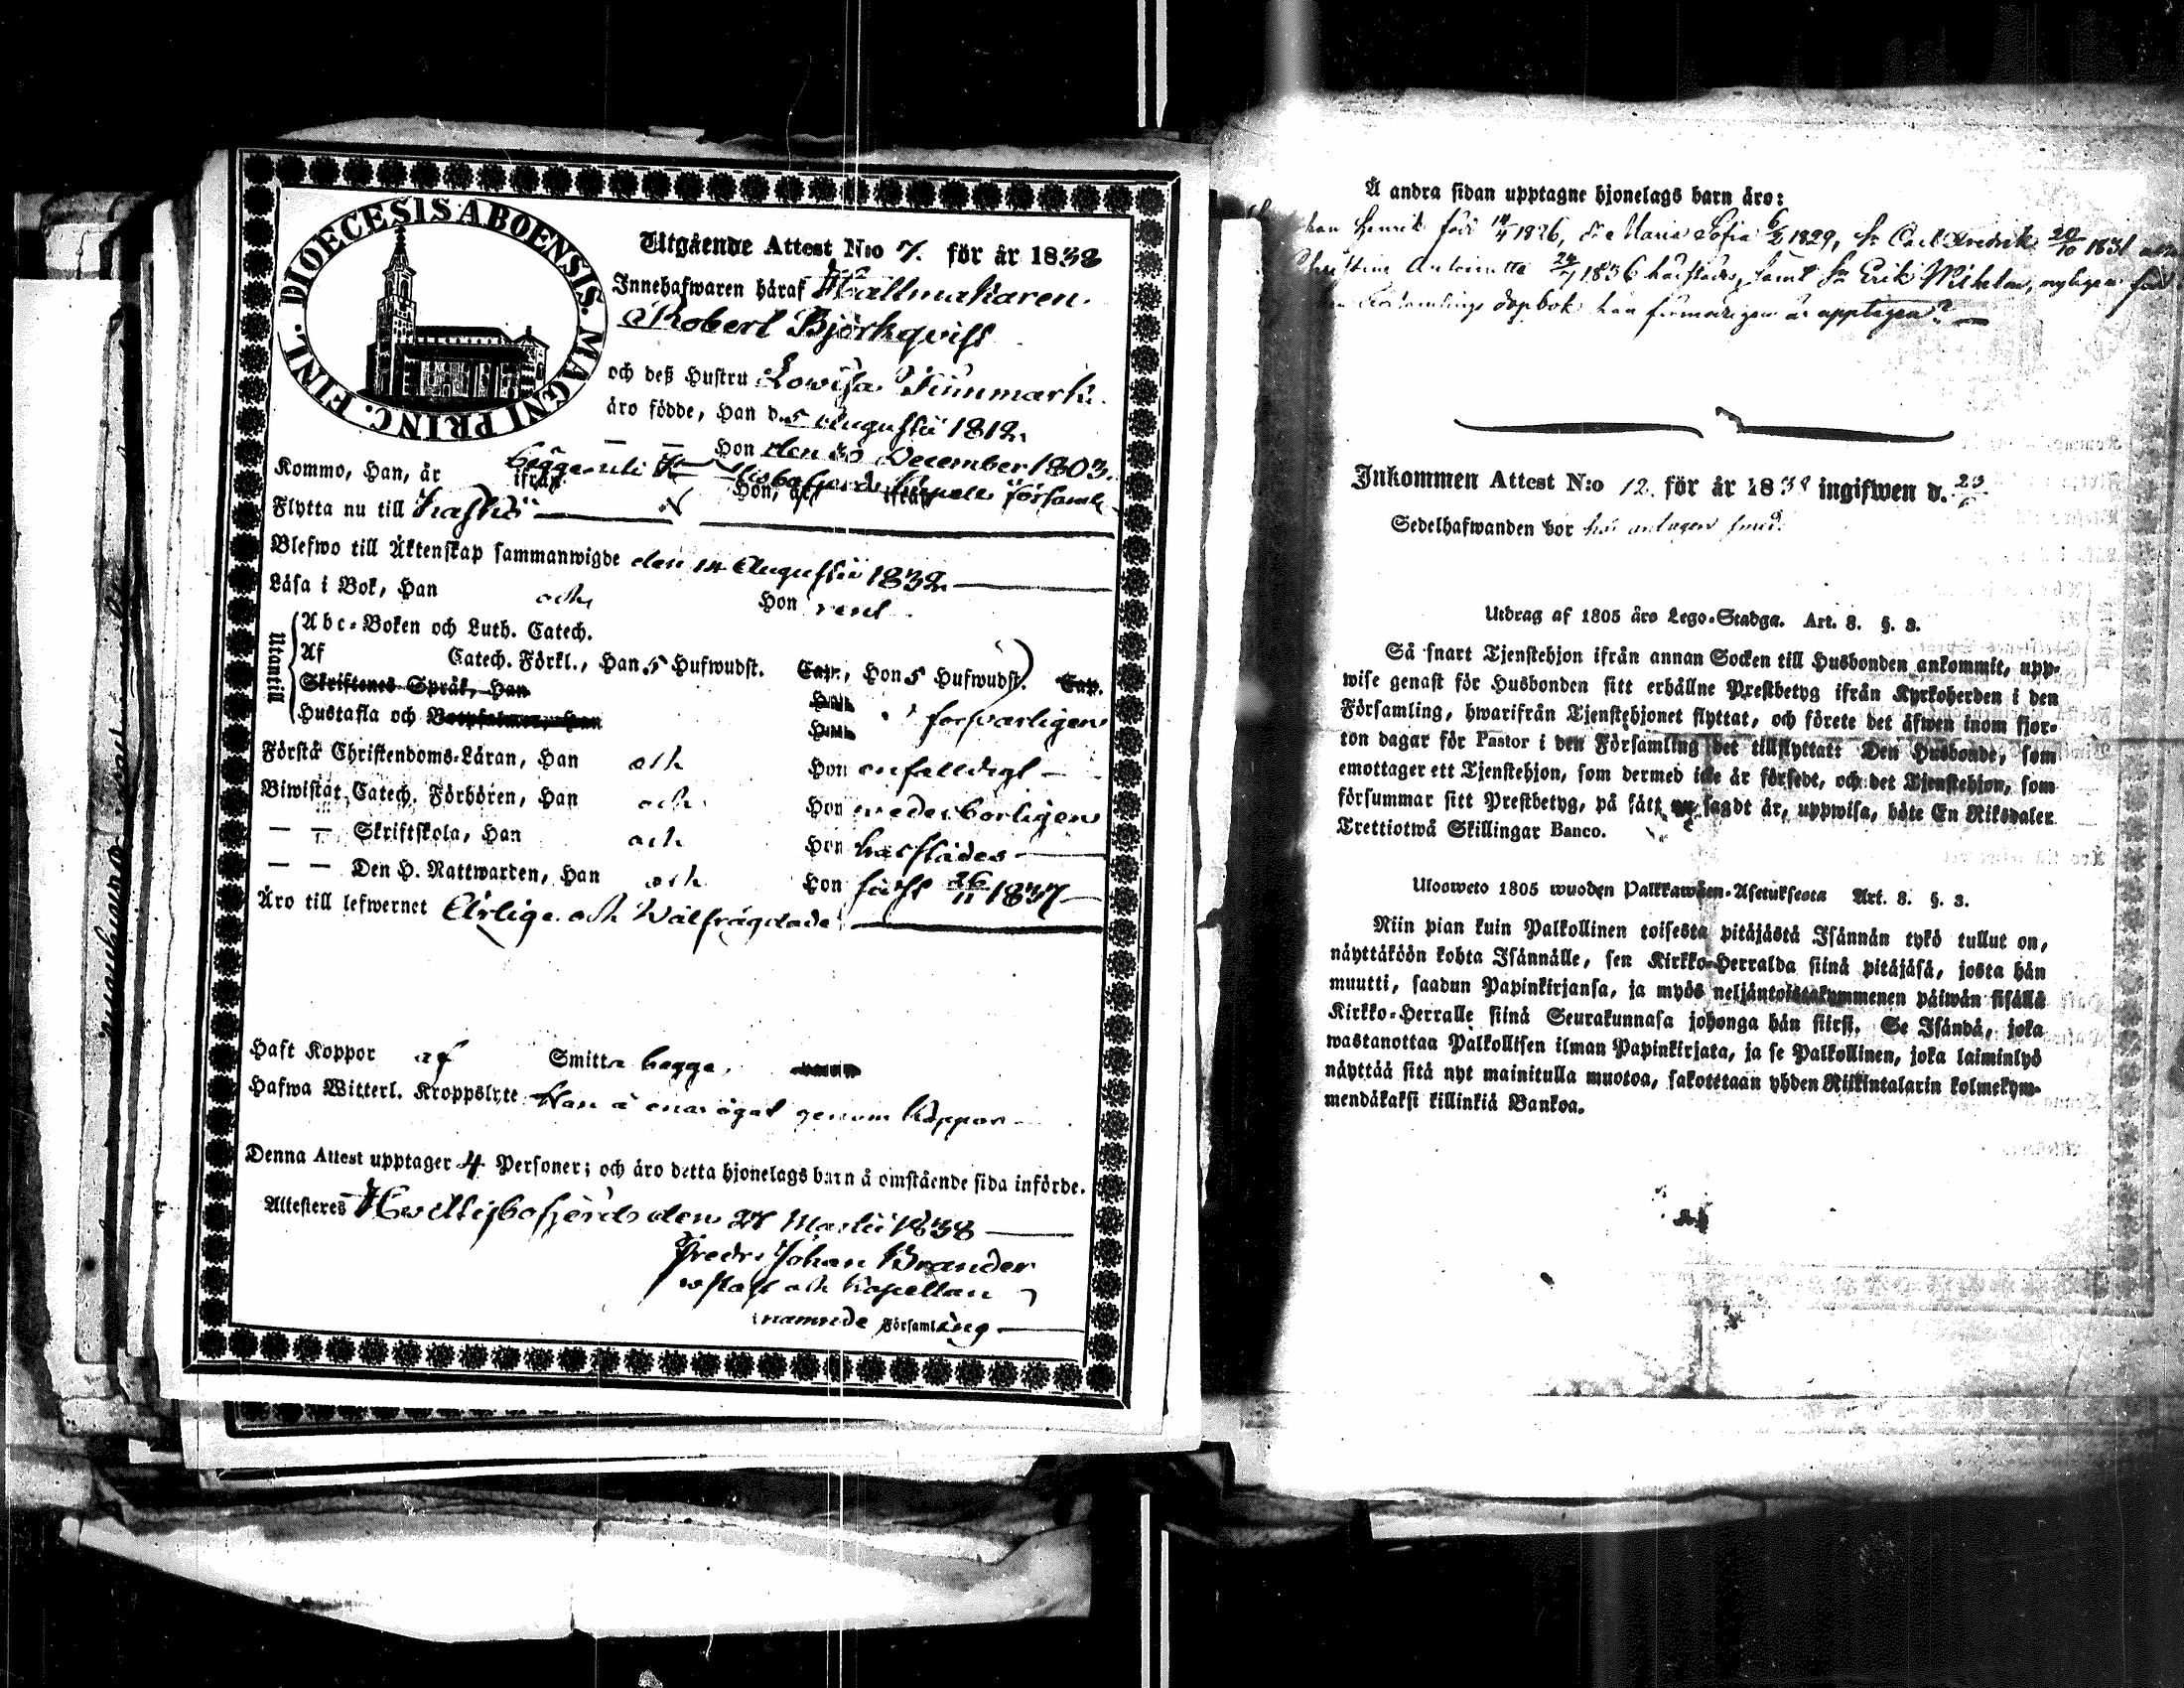 DIOECESIS ABOENSIS. MAGNI PRINC. FINL.
Utgående Attest N:o 7. för år 1838
Innehafwaren häraf Hattmakaren
Robert Björkqvist
och deß Hustru Lowisa Finnmark
äro födde, Han d. 5 Augusti 1812
— — Hon den 30 December 1803.
Kommo, Han, år ifrån Hon, år ifrån Kapells Församl
Flytta nu till Kaskö
Blefwo till Äktenskap sammanwigde den 14 Augusti 1832
Läsa i Bok, Han och Hon rent
Utantill
Abc-Boken och Luth. Catech.
Af Catech. Förkl., Han 5 Hufwudst. Cap., Hon 5 Hufwudst. Cap.
Skriftenes Språk, Han
Hustafla och försvarligen
Första Christendoms-Läran, Han och Hon enfalldigt
Biwistat Catech. Förhören, Han och Hon wederbörligen
— — Skriftskola, Han och Hon härstädes
— — Den H. Nattwarden, Han och Hon sist 26/11 1837
Äro till lefwernet Ärlige och Wälfrägdade
Haft Koppor af Smitta bägge
Hafwa Witterl. Kroppslyte Han å ena ögat genom koppor
Denna Attest upptager 4 Personer; och äro detta hjonelags barn å omstående sida införde.
Attesteras den 27 Martii 1838
Fredr. Johan Brander
och Kapellan
nämnde Församling
Å andra sidan upptagne hjonelags barn äro:
Henrik född 14/4 1826, Maria Sofia 6/2 1829, Carl Fredrik 20/10 1831
Christina Antoinetta 24/7 1836 härstädes, samt Erik Wilhelm, nyligen född
dopbok han är upptagen
Inkommen Attest N:o 12. för år 1838 ingifwen d.
Sedelhafwanden bor här antagen
Utdrag af 1805 års Lego-Stadga. Art. 8. §. 3.
Så snart Tjenstehjon ifrån annan Socken till Husbonden ankommit, upp-
wise genast för Husbonden sitt erhållne Prestbetyg ifrån Kyrkoherden i den
Församling, hwarifrån Tjenstehjonet flyttat, och förete det äfwen inom fjor-
ton dagar för Pastor i den Församling det tillflyttat: Den Husbonde, som
emottager ett Tjenstehjon, som dermed icke är försedt, och det Tjenstehjon, som
försummar sitt Prestbetyg, på sätt nu sagdt är, uppwisa, böte En Riksdaler
Trettiotwå Skillingar Banco.
Ulosweto 1805 wuoden Palkkawäen-Asetuksesta Art. 8. §. 3.
Niin pian kuin Palkollinen toisesta pitäjästä Isännän tykö tullut on,
näyttäköön kohta Isännälle, sen Kirkko-Herralda siinä pitäjäsä, josta hän
muutti, saadun Papinkirjansa, ja myös neljäntoistakymmenen päiwän sisällä
Kirkko-Herralle siinä Seurakunnasa johonga hän siirsi. Se Isändä, joka
wastanottaa Palkollisen ilman Papinkirjata, ja se Palkollinen, joka laiminlyö
näyttää sitä nyt mainitulla muotoa, sakotetaan yhden Riikintalarin kolmekym-
mendäkaksi killinkiä Bankoa.